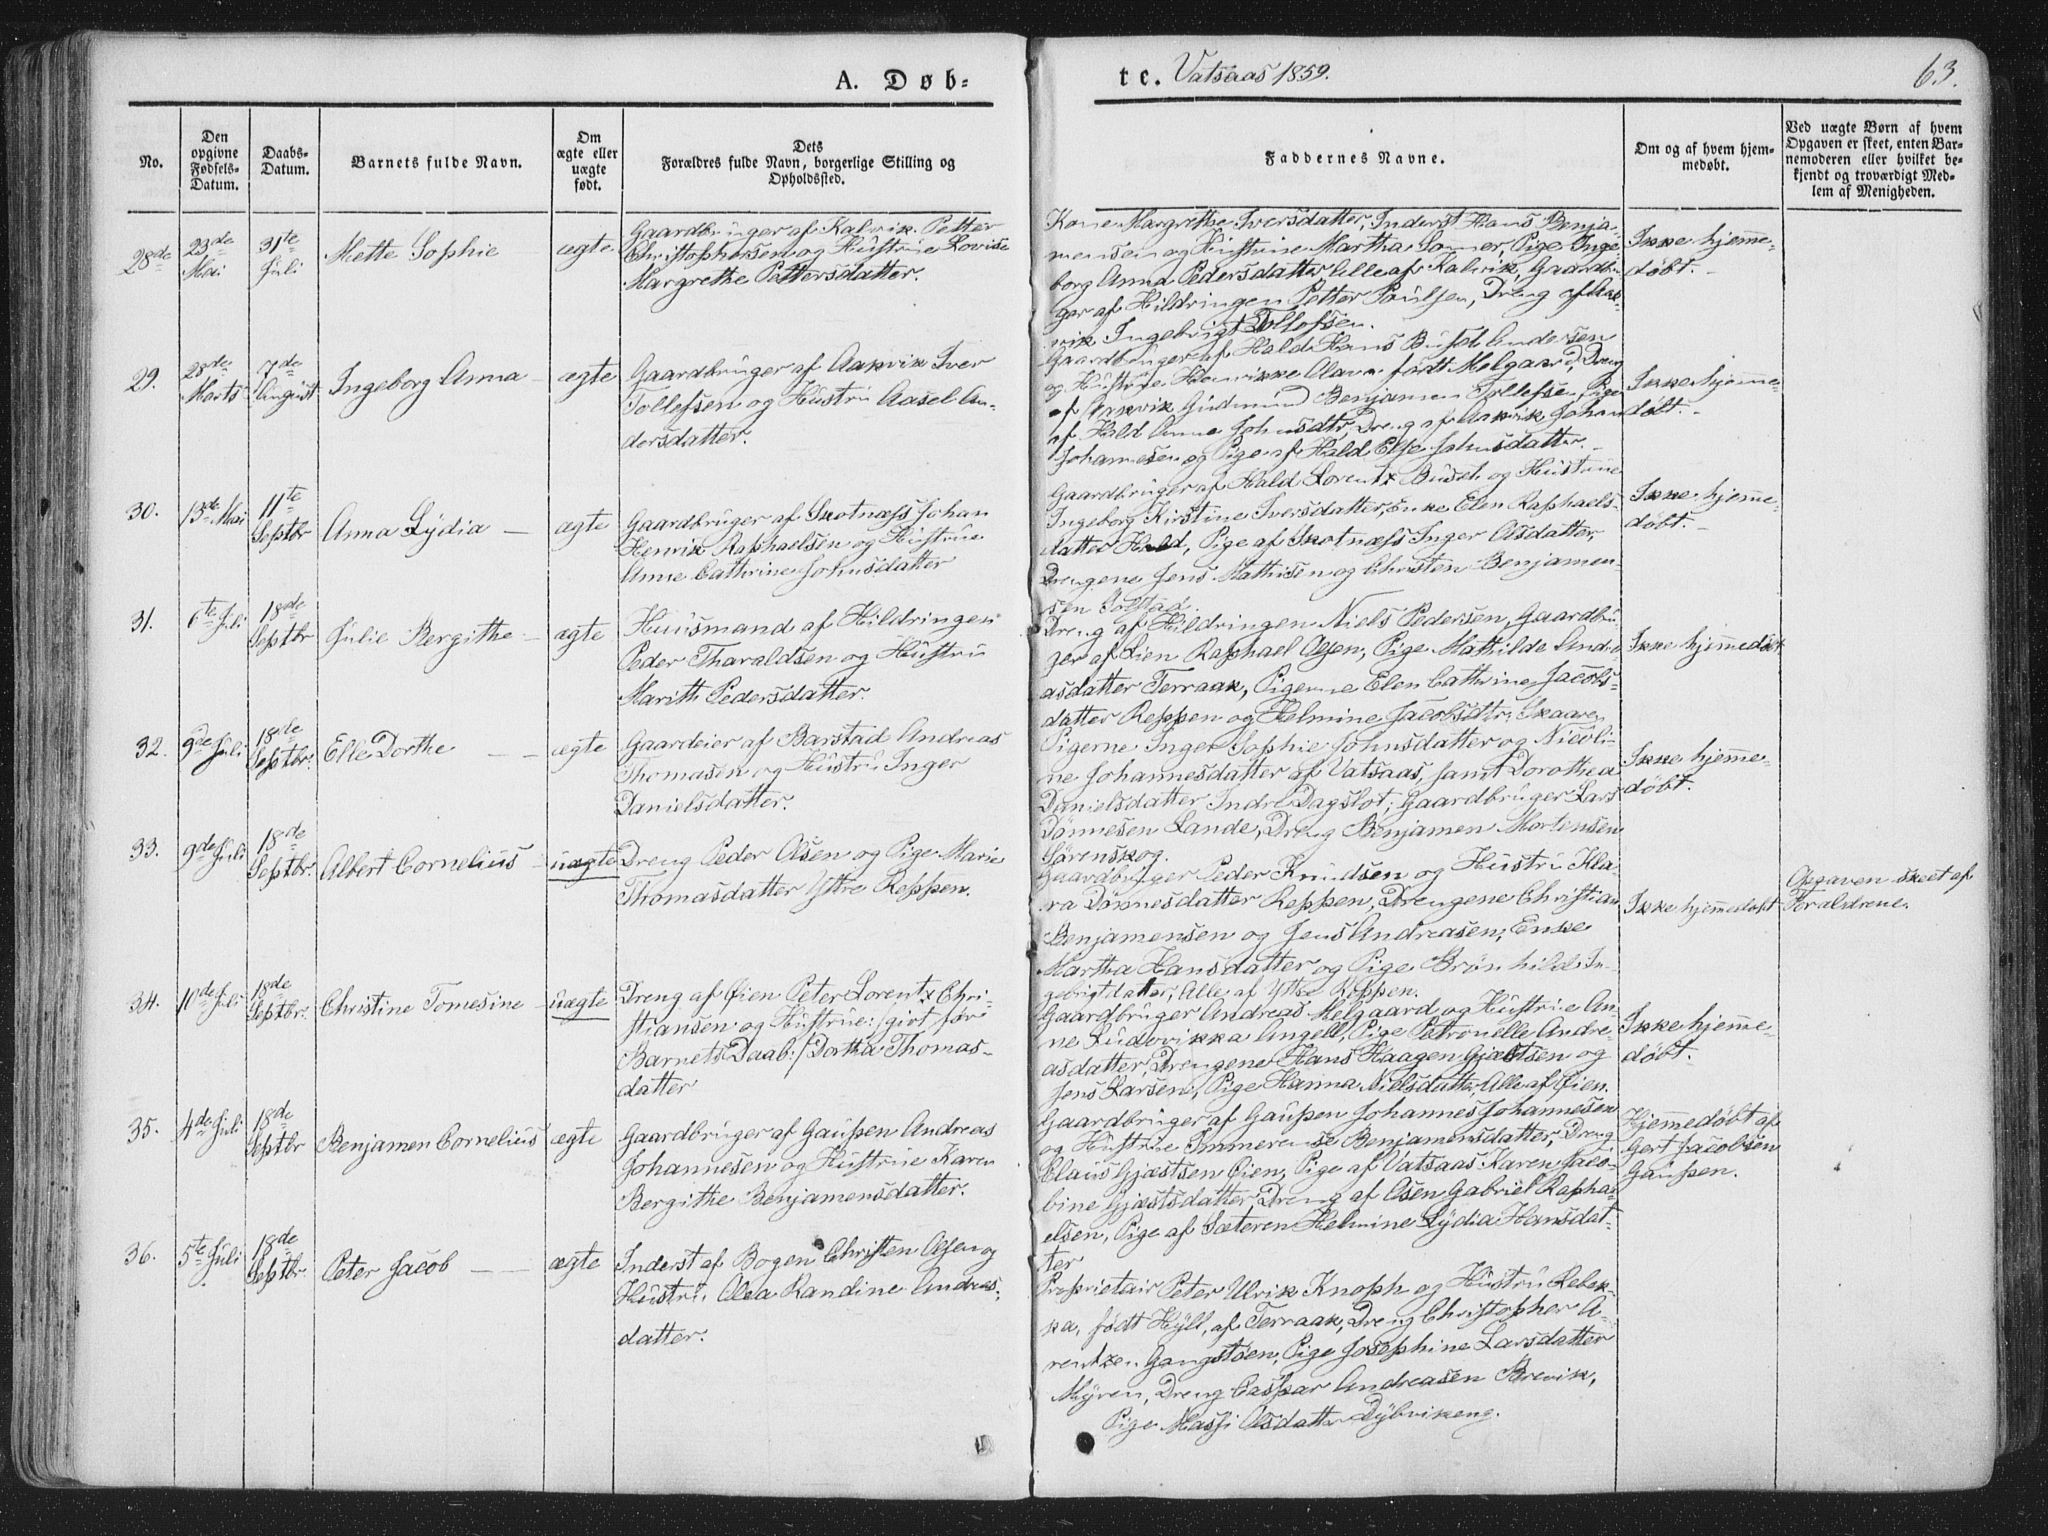 A. Døb-
te. Vatsaas 1859.
63.
No.
Den opgivne Fødsels-Datum.
Daabs-Datum.
Barnets fulde Navn.
Om ægte eller uægte født.
Dets
Forældres fulde Navn, borgerlige Stilling og
Opholdssted.
Faddernes Navne.
Om og af hvem hjem-
medøbt.
Ved uægte Børn af hvem
Opgaven er skeet, enten Bar-
nemoderen eller hvilket be-
kjendt og troværdigt Med-
lem af Menigheden.
28de 23de Mai 31te Juli Mette Sophie ægte
Gaardbruger af Kalvik Petter
Christophersen og Hustrue Lovise
Margrethe Pettersdatter.
Kone Margrethe Iversdatter, Inderst Hans Benja-
mensen og Hustrue Martha Somer, Pige Inge-
borg Anna Pedersdatter, alle af Kalvik, Gaardbru-
ger af Hildringen Petter Poulsen, Dreng af Aak-
vik Ingebrigt Tollefsen.
Ikke hjemme-
døbt.
29. 28de Marts 7de August Ingeborg Anna ægte
Gaardbruger af Aakvik Iver
Tollefsen og Hustru Aasel An-
dersdatter.
Gaardbruger af Hald Hans Busch Andersen
og Hustrue Henrikke Olava født Melgaard, Dreng
af Aakvik Gudmund Benjamen Tollefsen, Pige
af Hald Anne Johnsdtr, Dreng af Aakvik Johan
Johannesen og Pige af Hald Else Johnsdatter.
Ikke hjemme-
døbt.
30. 13de Mai 11te Septbr Anna Lydia ægte
Gaardbruger af Skotnæss Johan
Henrik Raphaelsen og Hustrue
Anne Cathrine Johnsdatter
Gaardbruger af Hald Lorentz Busch og Hustrue
Ingeborg Kirstine Iversdatter, Enke Elen Raphaels-
datter Hald, Pige af Skotnæss Inger Olsdatter,
Drengene Jens Mathisen og Christen Benjamen-
sen Solstad.
Ikke hjemme-
døbt.
31. 6te Juli 18de Septbr Julie Bergithe ægte
Huusmand af Hildringen
Peder Tharaldsen og Hustru
Marith Pedersdatter.
Dreng af Hildringen Niels Pedersen, Gaardbru-
ger af Lien Raphael Olsen, Pige Mathilde Andre-
asdatter Terraak, Pigerne Elen Cathrine Jacobs-
datter Reppen og Helmine Jacobsdtr. Skaaren
Ikke hjemmedøbt
32. 9de Juli 18de Septbr. Elle Dorthe ægte
Gaardeier af Barstad Andreas
Thomasen og Hustru Inger
Danielsdatter.
Pigerne Inger Sophie Johnsdatter og Nicoli-
ne Johannesdatter af Vatsaas, samt Dorothea
Danielsdatter Indre Dagslot; Gaardbruger Lars
Dønnesen Lande, Dreng Benjamen Mortensen
Sørenskog.
Ikke hjemme-
døbt.
33. 9de Juli 18de Septbr. Albert Cornelius uægte
Dreng Peder Olsen og Pige Marie
Thomasdatter Yttre Reppen.
Gaardbruger Peder Knudsen og Hustru Kla-
ra Dønnesdatter Reppen, Drengene Christian
Benjamensen og Jens Andreasen, Enke
Martha Hansdatter og Pige Brønhild In-
gebrigtdatter, Alle af Yttre Reppen.
Ikke hjemmedøbt
Opgaven skeet af
Foraldrene.
34. 10de Juli 18de Septbr. Christine Tomesine uægte
Dreng af Øien Peter Lorentz Chri-
stiansen og Hustrue: /givt før
Barnets Daab:/ Dorthea Thomas-
datter
Gaardbruger Andreas Melgaard og Hustrue An-
ne Ludovikka Angell, Pige Petronelle Andre-
asdatter, Drengene Hans Haagen Gjæstsen og
Jens Larsen, Pige Hanna Nielsdatter, Alle af Øien.
Ikke hjemme-
døbt.
35. 4de Juli 18de Septbr Benjamen Cornelius ægte
Gaardbruger af Gaupen Andreas
Johannesen og Hustrue Karen
Bergithe Benjamensdatter.
Gaardbruger af Gaupen Johannes Johannesen
og Hustrue Immerense Benjamensdatter, Dreng
Claus Gjæstsen Øien, Pige af Vatsaas Karen Jaco-
bine Gjæstsdatter, Dreng af Olsen Gabriel Rapha-
elsen, Pige af Sæteren Helmine Lydia Hansdat-
ter
Hjemmedøbt af
Gert Jacobsen
Gaupen.
36. 5te Juli 18de Septbr. Peter Jacob ægte
Inderst af Bogen Christen Olsen og
Hustru Olea Randine Andreas-
datter.
Proprietair Peter Ulrik Knoph og Hustru Rebek-
ka, født Hyll, af Terraak, Dreng Christopher A-
rentzen Gangstøen, Pige Josephine Larsdatter
Myren, Dreng Caspar Andreasen Brevik,
Pige Massi Olsdatter Dybvikeng.